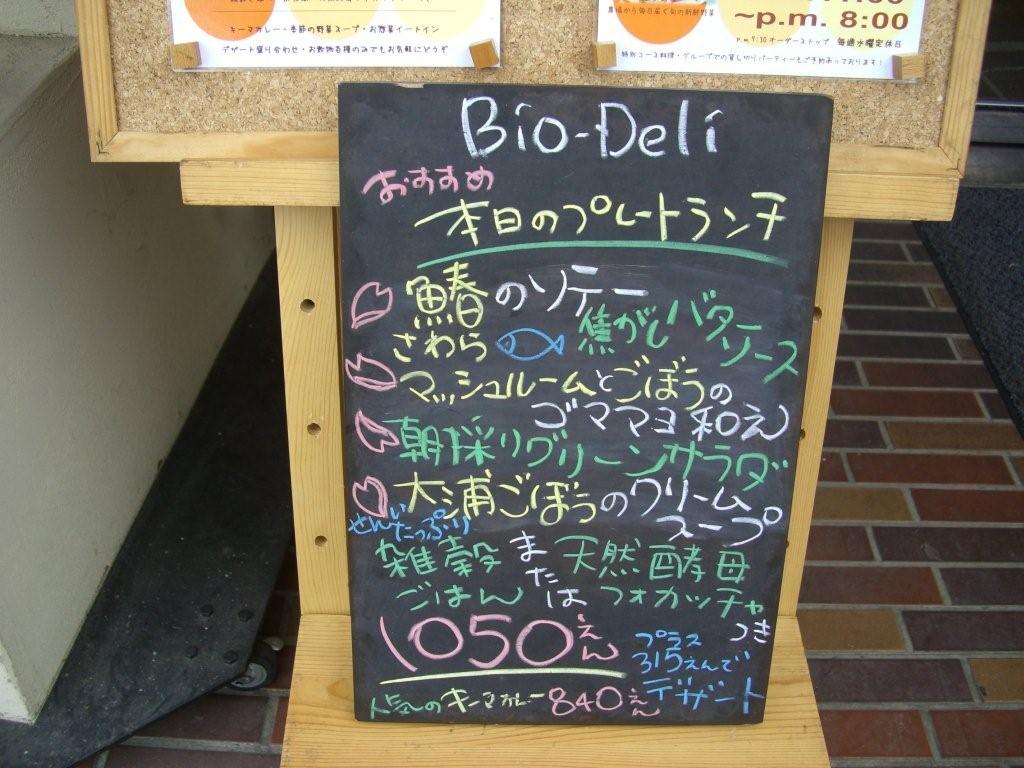 キーマカレー・季節の野菜スープ・お惣菜イートイン
デザート盛り合わせ・お飲物各種のみでもお気軽にどうぞ
農場から毎日届く旬の新鮮野菜
~p.m. 8:00
p.m 7:30 オーダーストップ 毎週水曜定休日
特別コース料理・グループでの貸し切りパーティーもご予約承っております!
Bio-Deli
おすすめ
本日のプレートランチ
鰆のソテー
さわら 焦がしバターソース
マッシュルームとごぼうの
ゴママヨ和え
朝採りグリーンサラダ
大浦ごぼうのクリーム
スープ
せんいたっぷり
雑穀ごはん または 天然酵母フォカッチャ
つき
1050えん
プラス
315えんで
デザート
人気のキーマカレー 840えん